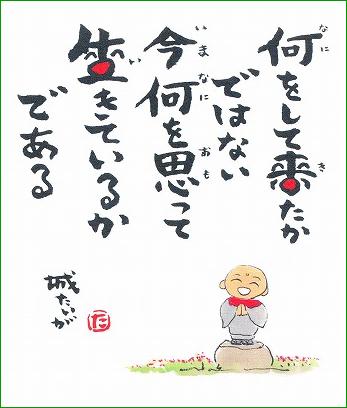 何をして来たか
ではない
今何を思って
生きているか
である
城たいが
た